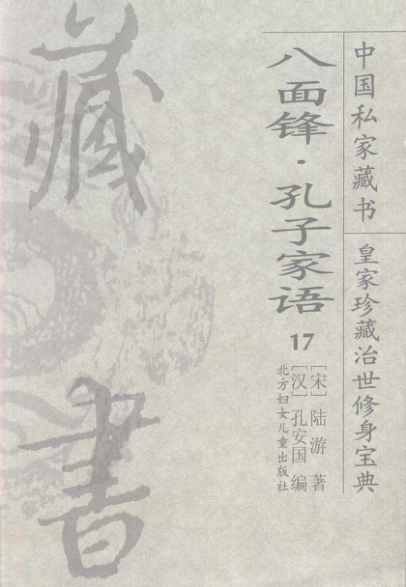 中国私家藏书
皇家珍藏治世修身宝典
八面锋·孔子家语
17
[宋]陆游 著
[汉]孔安国 编
北方妇女儿童出版社
藏書